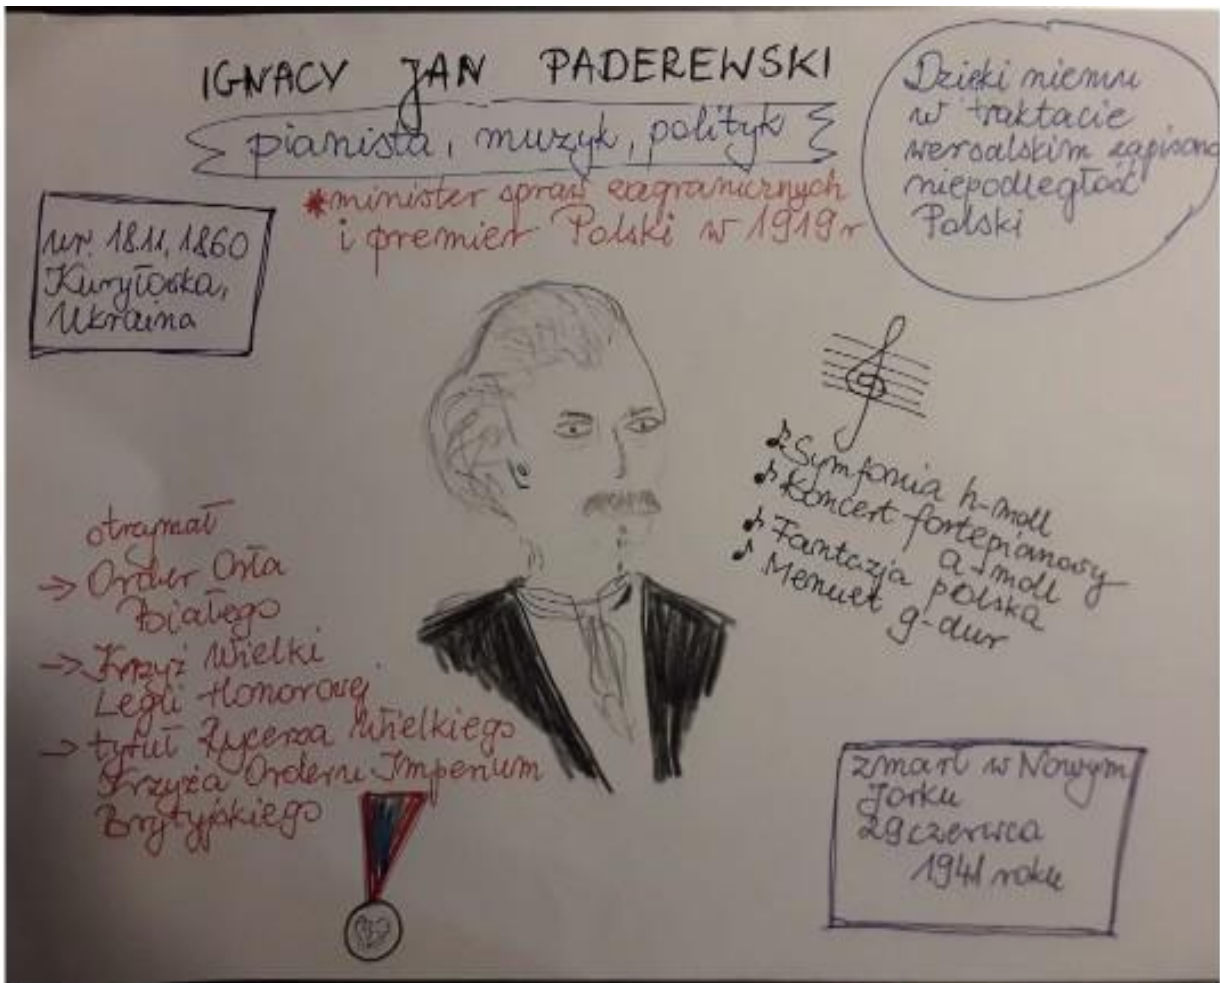 IGNACY JAN PADEREWSKI
pianista, muzyk, polityk
*minister spraw zagranicznych
i premier Polski w 1919 r
Dzięki niemu
w traktacie
wersalskim zapisano
niepodległość
Polski
ur. 18.11.1860
Kuryłówka,
Ukraina
Symfonia h-moll
Koncert fortepianowy
a-moll
Fantazja polska
Menuet g-dur
otrzymał
→ Order Orła
Białego
→ Krzyż Wielki
Legii Honorowej
→ tytuł Rycerza Wielkiego
Krzyża Orderu Imperium
Brytyjskiego
zmarł w Nowym
Jorku
29 czerwca
1941 roku